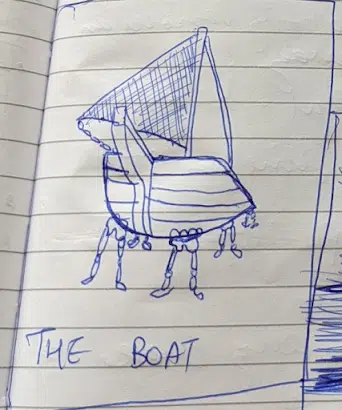 THE BOAT